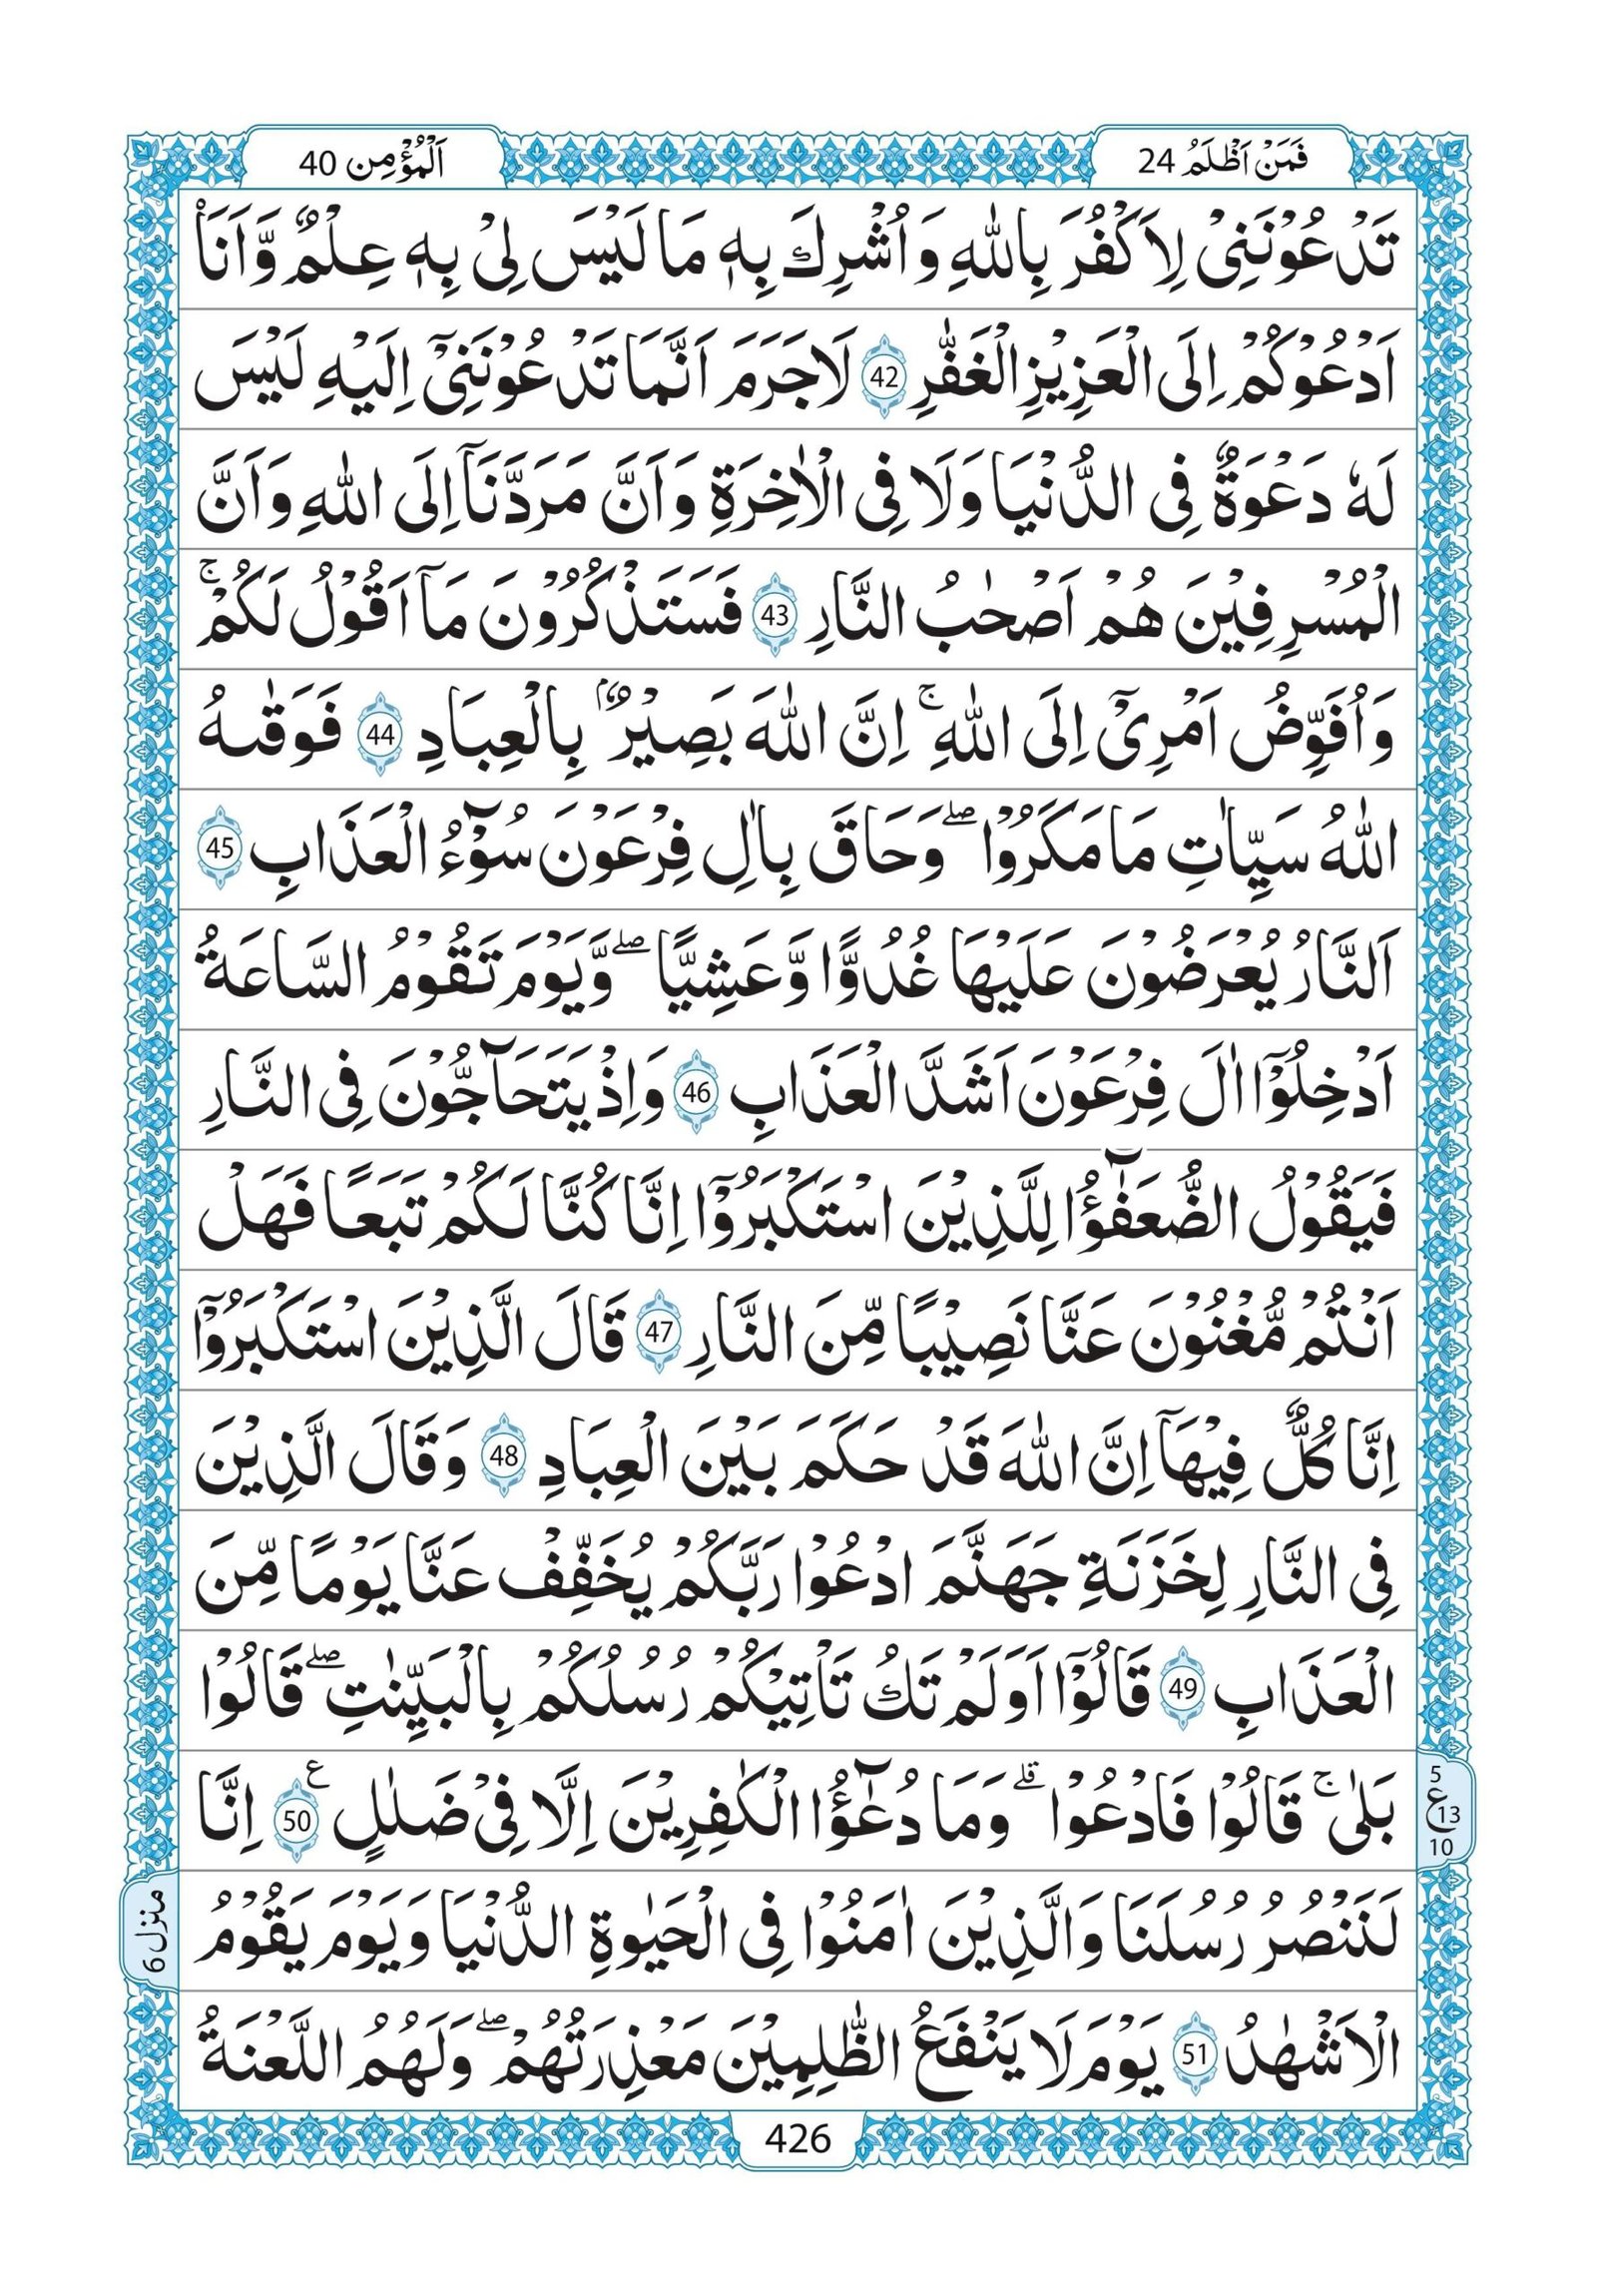 فَمَنْ اَظْلَمُ 24
اَلْمُؤْمِن 40
تَدْعُوْنَنِیْ لِاَكْفُرَ بِاللّٰهِ وَ اُشْرِكَ بِهٖ مَا لَیْسَ لِیْ بِهٖ عِلْمٌ وَّ اَنَاْ
اَدْعُوْكُمْ اِلَی الْعَزِیْزِ الْغَفّٰرِ 42 لَا جَرَمَ اَنَّمَا تَدْعُوْنَنِیْۤ اِلَیْهِ لَیْسَ
لَهٗ دَعْوَةٌ فِی الدُّنْیَا وَ لَا فِی الْاٰخِرَةِ وَ اَنَّ مَرَدَّنَاۤ اِلَی اللّٰهِ وَ اَنَّ
الْمُسْرِفِیْنَ هُمْ اَصْحٰبُ النَّارِ 43 فَسَتَذْكُرُوْنَ مَاۤ اَقُوْلُ لَكُمْ ۚ
وَ اُفَوِّضُ اَمْرِیْۤ اِلَی اللّٰهِ ۚ اِنَّ اللّٰهَ بَصِیْرٌۢ بِالْعِبَادِ 44 فَوَقٰىهُ
اللّٰهُ سَیِّاٰتِ مَا مَكَرُوْا ۖ وَ حَاقَ بِاٰلِ فِرْعَوْنَ سُوْٓءُ الْعَذَابِ 45
اَلنَّارُ یُعْرَضُوْنَ عَلَیْهَا غُدُوًّا وَّ عَشِیًّا ۖ وَّیَوْمَ تَقُوْمُ السَّاعَةُ
اَدْخِلُوْۤا اٰلَ فِرْعَوْنَ اَشَدَّ الْعَذَابِ 46 وَ اِذْ یَتَحَآجُّوْنَ فِی النَّارِ
فَیَقُوْلُ الضُّعَفٰٓؤُا لِلَّذِیْنَ اسْتَكْبَرُوْۤا اِنَّا كُنَّا لَكُمْ تَبَعًا فَهَلْ
اَنْتُمْ مُّغْنُوْنَ عَنَّا نَصِیْبًا مِّنَ النَّارِ 47 قَالَ الَّذِیْنَ اسْتَكْبَرُوْۤا
اِنَّا كُلٌّ فِیْهَاۤ اِنَّ اللّٰهَ قَدْ حَكَمَ بَیْنَ الْعِبَادِ 48 وَ قَالَ الَّذِیْنَ
فِی النَّارِ لِخَزَنَةِ جَهَنَّمَ ادْعُوْا رَبَّكُمْ یُخَفِّفْ عَنَّا یَوْمًا مِّنَ
الْعَذَابِ 49 قَالُوْۤا اَوَلَمْ تَكُ تَاْتِیْكُمْ رُسُلُكُمْ بِالْبَیِّنٰتِ ۖ قَالُوْا
بَلٰی ۚ قَالُوْا فَادْعُوْا ۗ وَ مَا دُعٰٓؤُا الْكٰفِرِیْنَ اِلَّا فِیْ ضَلٰلٍ ع 50 اِنَّا
5
ع 13
10
لَنَنْصُرُ رُسُلَنَا وَ الَّذِیْنَ اٰمَنُوْا فِی الْحَیٰوةِ الدُّنْیَا وَ یَوْمَ یَقُوْمُ
منزل 6
الْاَشْهٰدُ 51 یَوْمَ لَا یَنْفَعُ الظّٰلِمِیْنَ مَعْذِرَتُهُمْ ۖ وَ لَهُمُ اللَّعْنَةُ
426